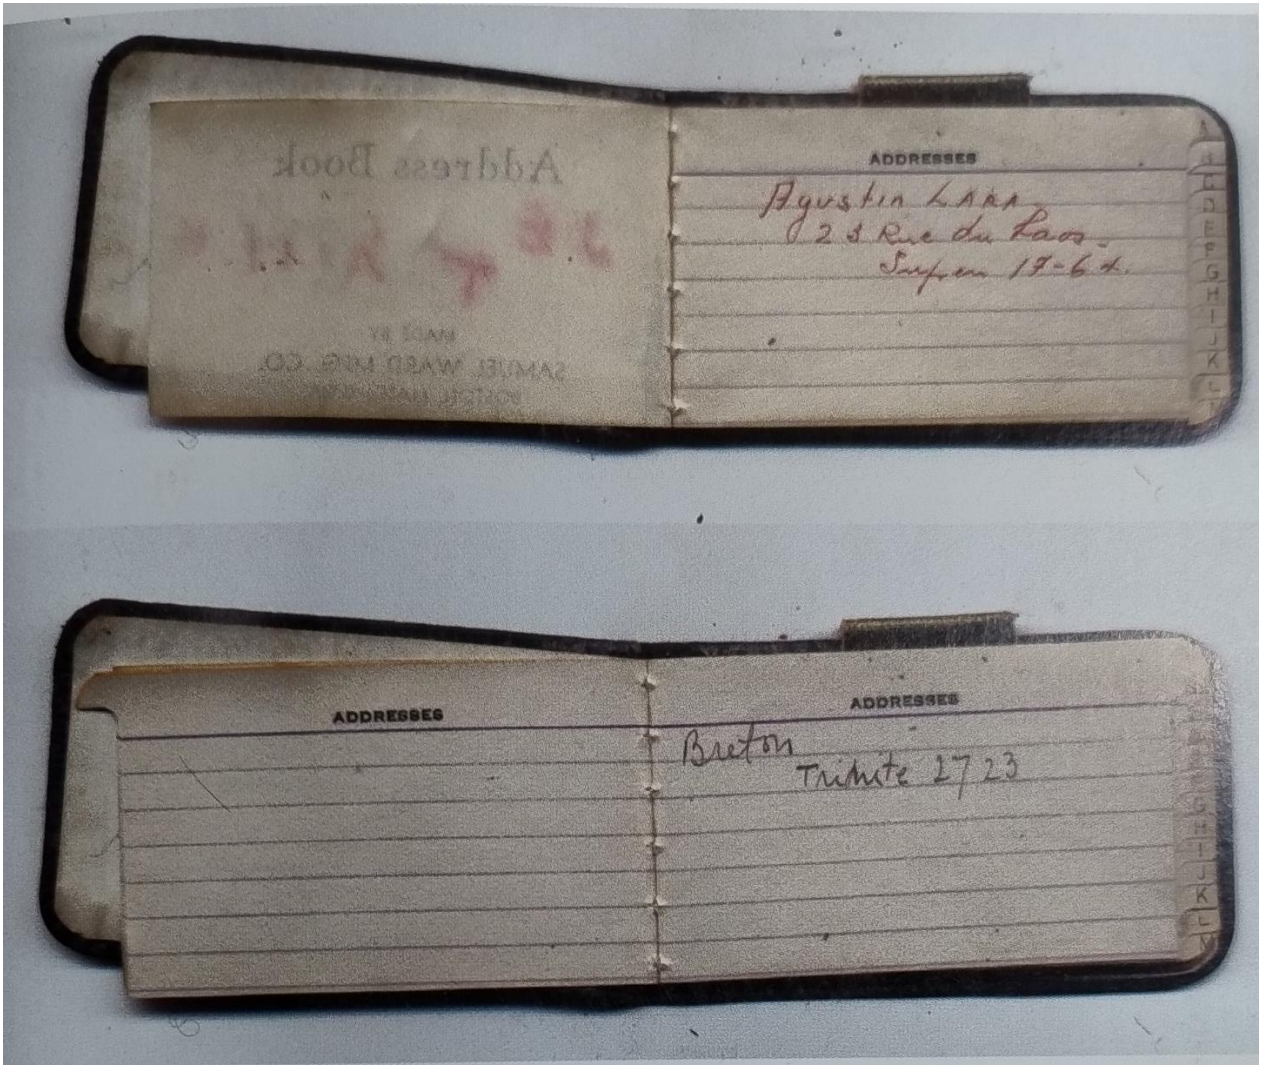 Address Book
MADE BY
SAMUEL WARD MFG. CO.
ADDRESSES
Agustin LARA.
23 Rue du Laos.
17-64.
A
D
E
F
G
H
I
J
K
L
ADDRESSES
ADDRESSES
Breton
Trinite 27 23
G
H
I
J
K
L